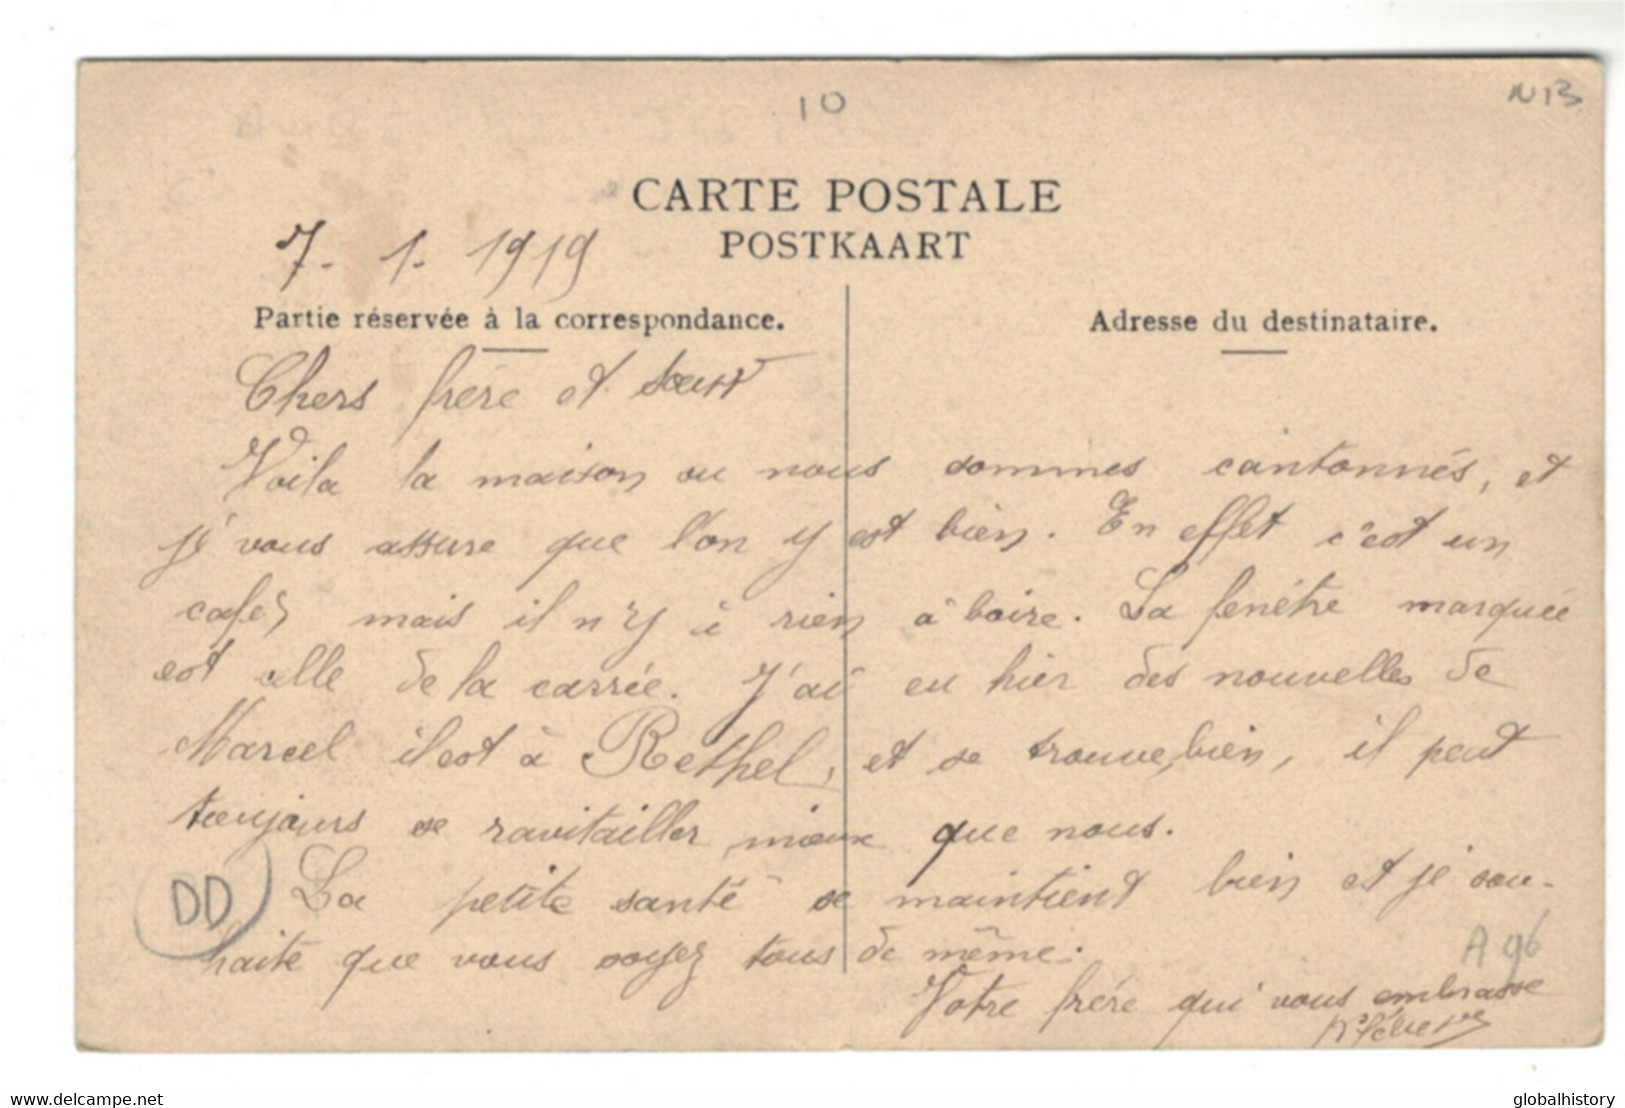 10
N13
CARTE POSTALE
POSTKAART
7. 1. 1919
Partie réservée à la correspondance.
Adresse du destinataire.
Chers frère et sœur
Voila la maison ou nous sommes cantonnés, et
je vous assure que l'on y est bien. En effet c'est un
café, mais il n'y à rien à boire. La fenêtre marquée
est celle de la carrée. J'ai eu hier des nouvelles de
Marcel il est à Rethel, et se trouve bien, il peut
toujours se ravitailler mieux que nous.
DD
La petite santé se maintient bien et je sou-
haite que vous soyez tous de même.
A 96
Votre frère qui vous embrasse
delcampe.net
globalhistory